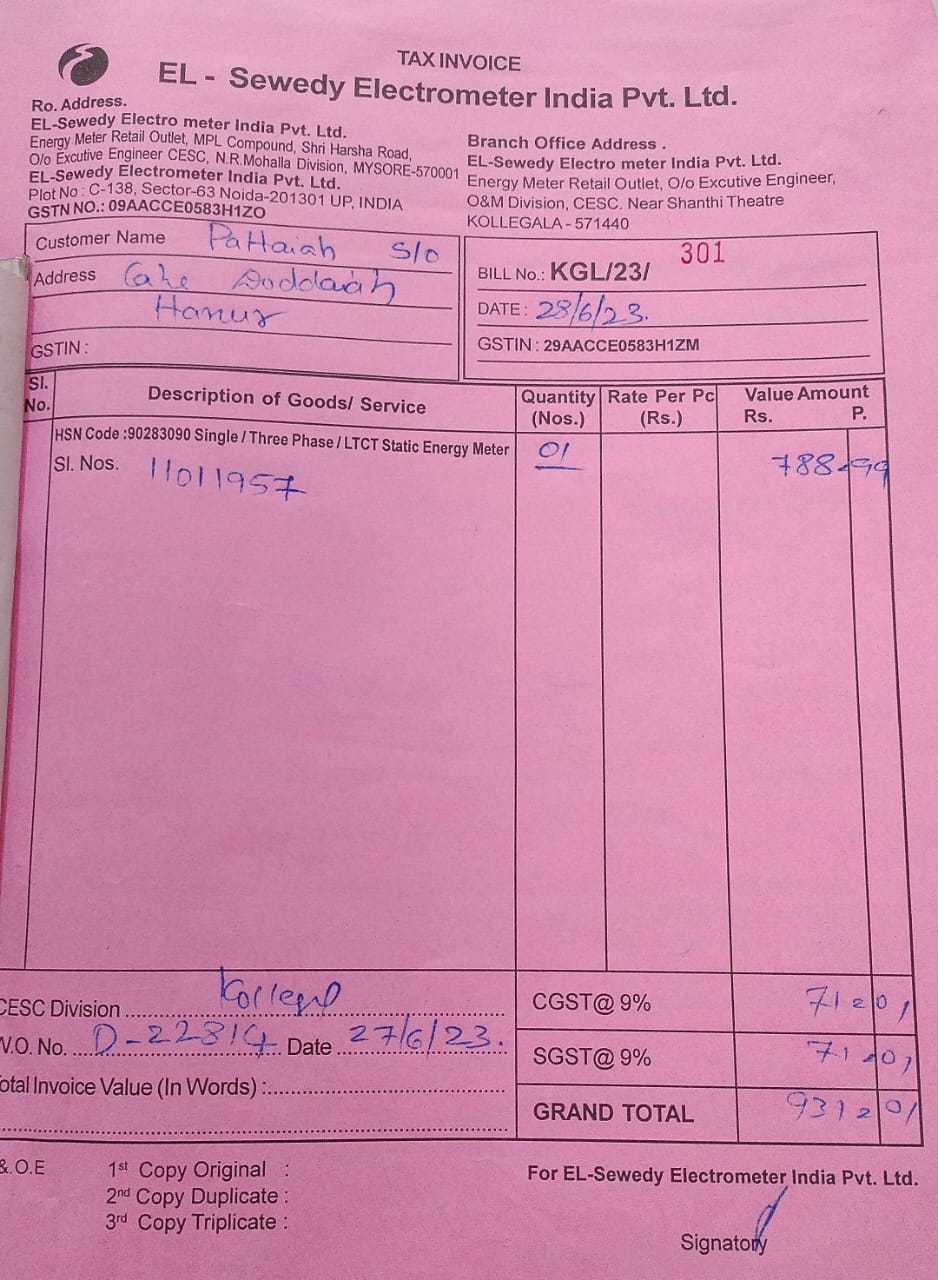 TAX INVOICE
EL - Sewedy Electrometer India Pvt. Ltd.
Ro. Address.
EL-Sewedy Electro meter India Pvt. Ltd.
Energy Meter Retail Outlet, MPL Compound, Shri Harsha Road,
O/o Excutive Engineer CESC, N.R.Mohalla Division, MYSORE-570001
EL-Sewedy Electrometer India Pvt. Ltd.
Plot No : C-138, Sector-63 Noida-201301 UP, INDIA
GSTN NO.: 09AACCE0583H1ZO
Branch Office Address .
EL-Sewedy Electro meter India Pvt. Ltd.
Energy Meter Retail Outlet, O/o Excutive Engineer,
O&M Division, CESC. Near Shanthi Theatre
KOLLEGALA - 571440
Customer Name Pattaiah S/o
Address Doddaiah
Hanur
GSTIN :
BILL No.: KGL/23/ 301
DATE : 28/6/23.
GSTIN : 29AACCE0583H1ZM
Sl. No. Description of Goods/ Service Quantity (Nos.) Rate Per Pc (Rs.) Value Amount Rs. P.
HSN Code :90283090 Single / Three Phase / LTCT Static Energy Meter 01 788-99
Sl. Nos. 11011957
CESC Division
CGST@ 9% 71 01
W.O. No. D-22814 Date 27/6/23.
SGST@ 9% 71 01
otal Invoice Value (In Words) :
GRAND TOTAL 931 01
&.O.E
1st Copy Original :
2nd Copy Duplicate :
3rd Copy Triplicate :
For EL-Sewedy Electrometer India Pvt. Ltd.
Signatory